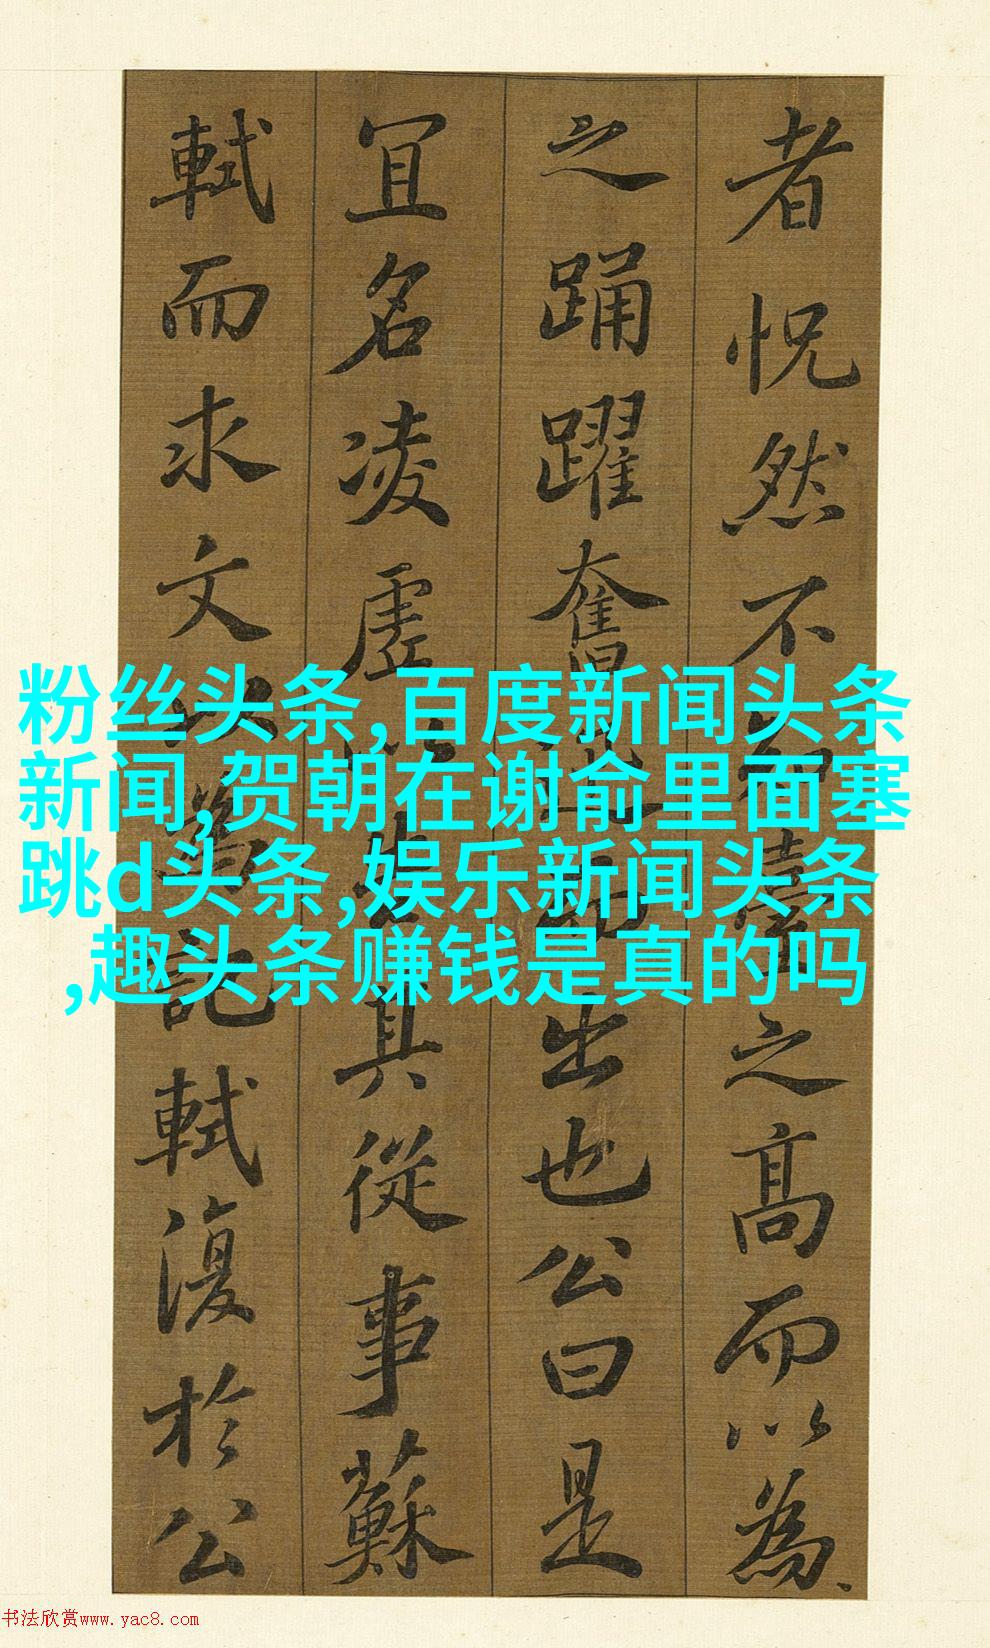 者怳然不知臺之高而以為
之踊躍奮迅而出也公曰是
宜名凌虛以告其從事蘇
軾而求文以為記軾復於公
粉丝头条,百度新闻头条
新闻,贺朝在谢俞里面塞
跳d头条,娱乐新闻头条
,趣头条赚钱是真的吗
书法欣赏www.yac8.com